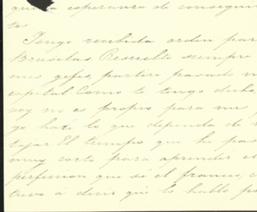 esperanza de consegui
Tengo recibida orden par
Bruselas siempre
mis gefes, partir pasado m
capital Como te tengo dicho,
soy no es propio para mi
yo haré lo que dependa de
tajar El tiempo que he pas
muy corto para aprender el
perfeccion que sé el frances, e
a decir que lo hablo po